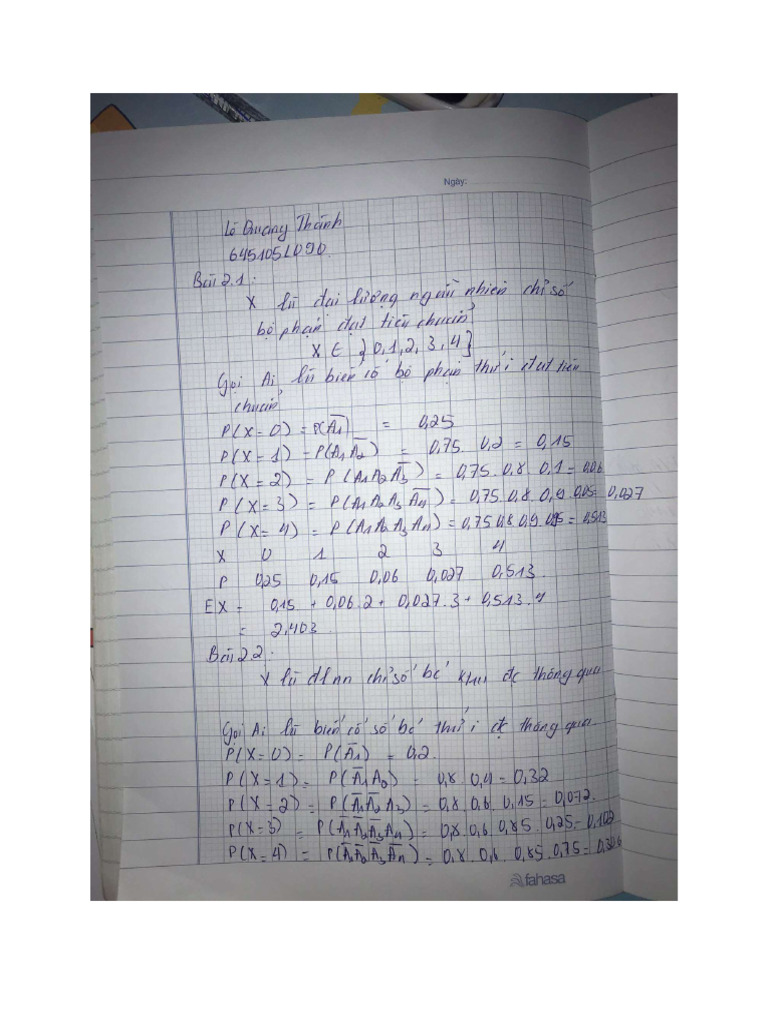 Ngày:
Lê Quang Thành
6451051090
Bài 2.1:
X là đại lượng ngẫu nhiên chỉ số
bộ phận đạt tiêu chuẩn
X ∈ {0,1,2,3,4}
Gọi Ai là biến cố bộ phận thứ i đạt tiêu
chuẩn
P(X=0) = P(A̅₁) = 0,25
P(X=1) = P(A₁A̅₂) = 0,75 . 0,2 = 0,15
P(X=2) = P(A₁A₂A̅₃) = 0,75 . 0,8 . 0,1 = 0,06
P(X=3) = P(A₁A₂A₃A̅₄) = 0,75 . 0,8 . 0,9 . 0,05 = 0,027
P(X=4) = P(A₁A₂A₃A₄) = 0,75 0,8 0,9 0,95 = 0,513
X 0 1 2 3 4
P 0,25 0,15 0,06 0,027 0,513
EX = 0,15 + 0,06.2 + 0,027.3 + 0,513.4
= 2,403
Bài 2.2:
X là đlnn chỉ số bc khi đc thông qua
Gọi Ai là biến cố số bc thứ i đc thông qua
P(X=0) = P(A̅₁) = 0,2
P(X=1) = P(A̅₁A₂) = 0,8 . 0,4 = 0,32
P(X=2) = P(A̅₁A̅₂A₃) = 0,8 . 0,6 . 0,15 = 0,072
P(X=3) = P(A̅₁A̅₂A̅₃A₄) = 0,8 . 0,6 . 0,85 . 0,25 = 0,102
P(X=4) = P(A̅₁A̅₂A̅₃A̅₄) = 0,8 . 0,6 . 0,85 . 0,75 = 0,306
fahasa